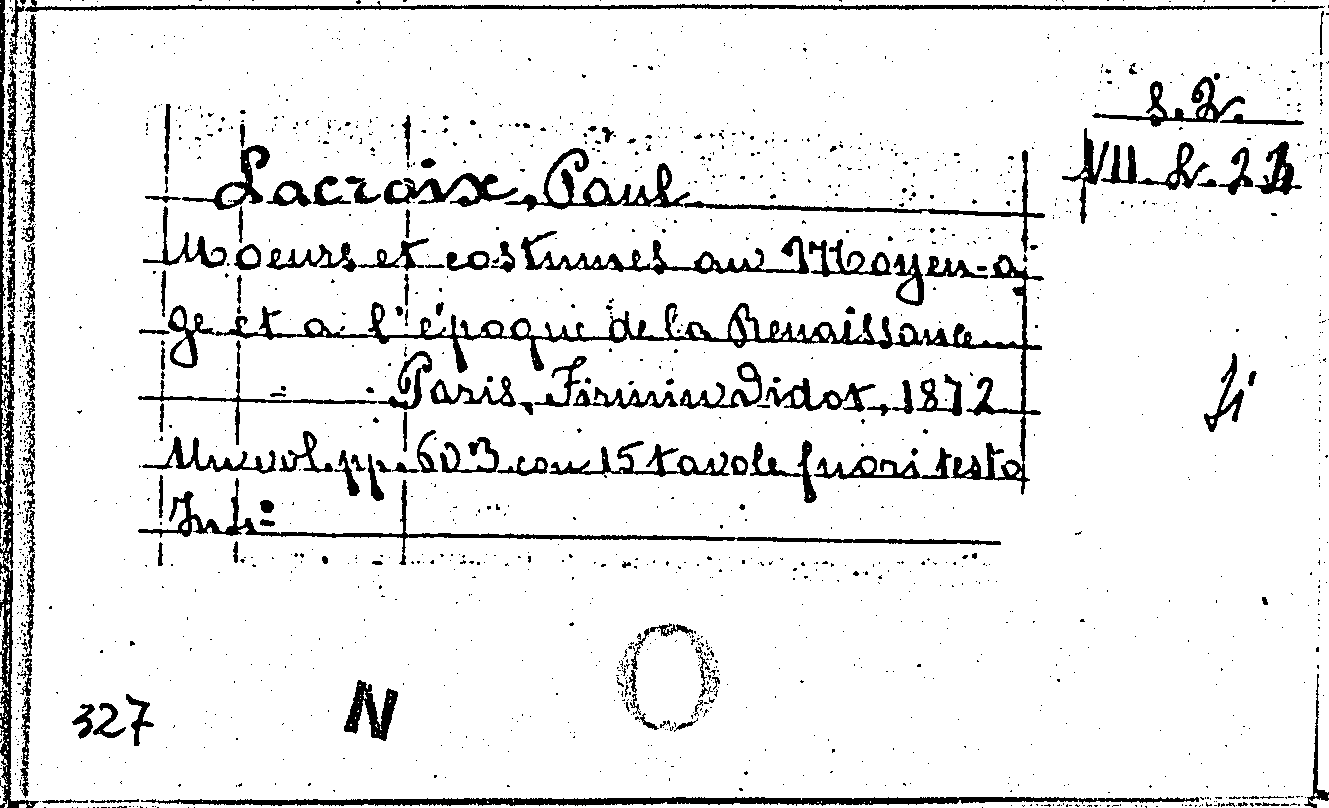 s. 2.
VII. L. 2
Lacroix, Paul
Moeurs et costumes au Moyen-a
ge et a l'époque de la Renaissance
Paris, Firmin Didot, 1872
Un vol. pp. 603 con 15 tavole fuori testo
In.4°
327 N